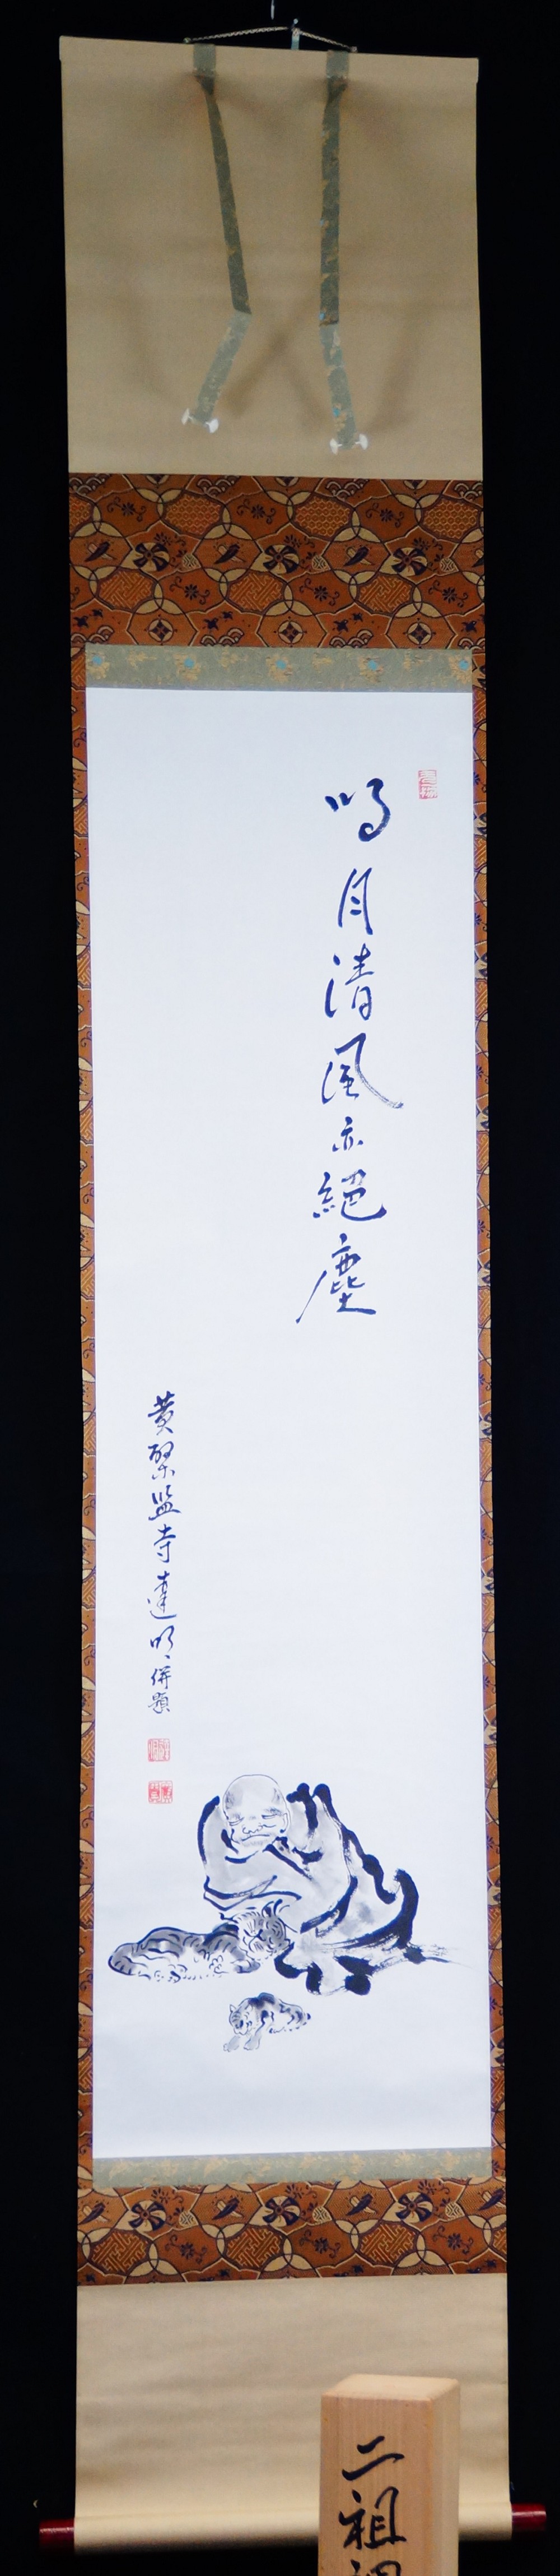 明月清風亦絕塵
黄檗监寺達明併題
二祖調